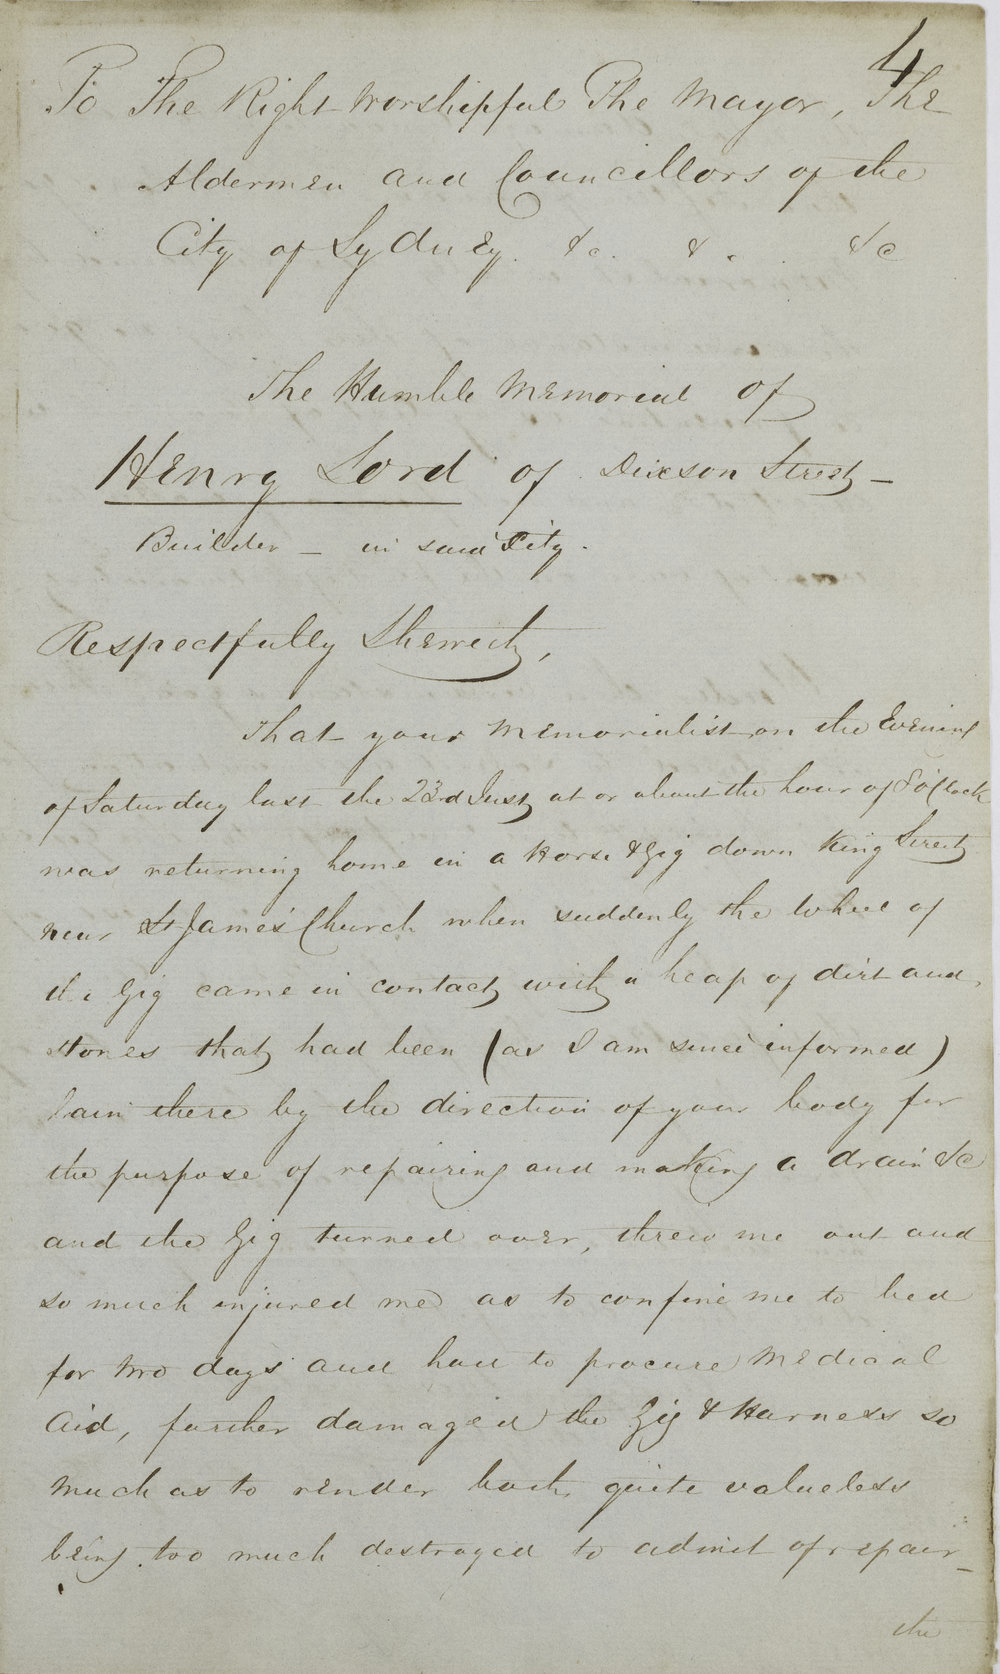 4
To The Right Worshipful The Mayor, The
Aldermen and Councillors of the
City of Sydney. &c. &c. &c
The Humble Memorial of
Henry Lord of Dixson Street –
Builder – in said City.
Respectfully Sheweth,
That your Memorialist on the Evening
of Saturday last the 23rd Inst, at or about the hour of 8 o'Clock
was returning home in a Horse & Gig down King Street
near St James' Church when suddenly the Wheel of
the Gig came in contact with a heap of dirt and
stones that had been (as I am since informed)
lain there by the direction of your body for
the purpose of repairing and making a drain &c
and the Gig turned over, threw me out and
so much injured me as to confine me to bed
for two days and had to procure Medical
Aid, further damaged the Gig & Harness so
much as to render both quite valueless
being too much destroyed to admit of repair –
the